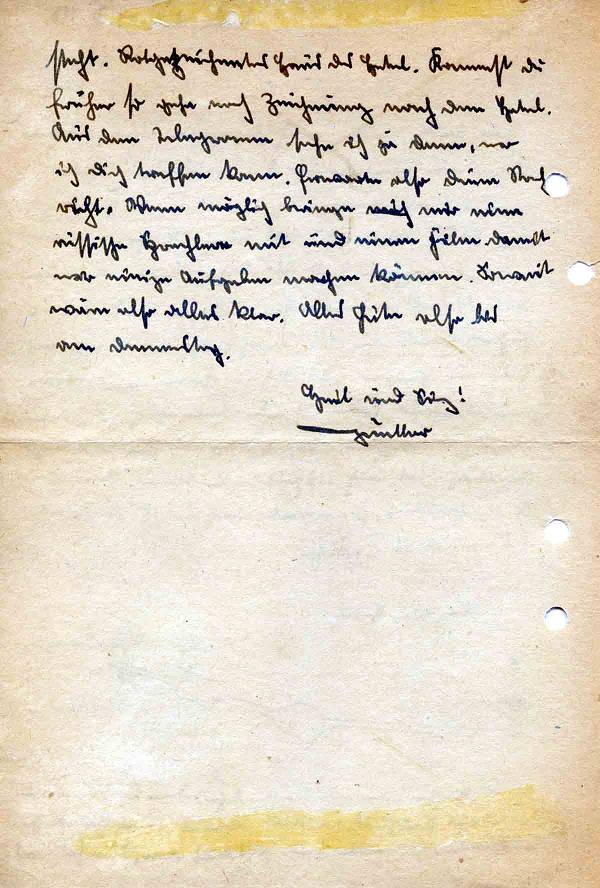 steht. Rotgezeichnetes Haus das Hotel. Kommst du
früher so gehe nach Zeichnung nach dem Hotel.
Aus dem Telegramm sehe ich ja dann, wo
ich dich treffen kann. Erwarte also deine Nach
richt. Wenn möglich bringe mir eine
russische Sprachlere mit und einen Film damit
wir einige Aufgaben machen können. Somit
wäre also alles klar. Alles Gute also bis
am Donnerstag.
Heil und Sieg!
Günther